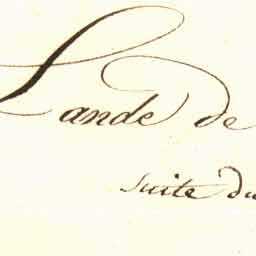 Lande de
suite du